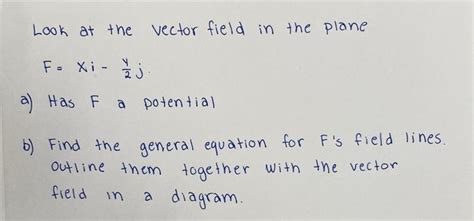 Look at the vector field in the plane
F = xi - y/2 j.
a) Has F a potential
b) Find the general equation for F's field lines.
outline them together with the vector
field in a diagram.